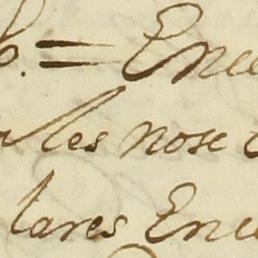 . = Ene
les nose
lares Ene